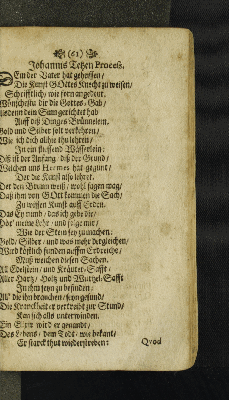 (61)
Johannis Tetzen Proceß.
Dem der Vater hat geholffen/
Die Kunst GOttes Knecht zu weisen/
Schrifftlich/ wie forn angedeut.
Gold und Silber selt verkehren/
Wie ich dich allhie thu lehren/
In ein fliessend Wässerlein:
Diß ist der Anfang, diß der Grund/
Welchen uns Hermes hat gegunt/
Der die Kunst also lehret.
Der den Brunn weiß/ wohl sagen mag/
Daß ihm von GOtt kommen die Sach/
Zu wissen Kunst auff Erden.
Das Ey rund/ das ich gebe dir/
Hör meine Lehr/ und folge mir/
Wie der Stein sey zu machen:
Gold/ Silber/ und was mehr dergleichen/
Wird köstlich funden auffm Erdreiche/
Muß weichen diesen Sachen.
All Edelstein/ und Kräuter-Safft/
Aller Hartz/ Holtz und Wurtzel-Safft
In ihm seyn zu befinden/
All die ihn brauchen/ seyn gesund/
Die Kranckheit er vertreibt zur Stund/
Kan sich alls unterwinden.
Ein Elixir wird er genandt/
Des Lebens/ dem Todt/ wie bekant/
Er starck thut wiederstreben:
Quod